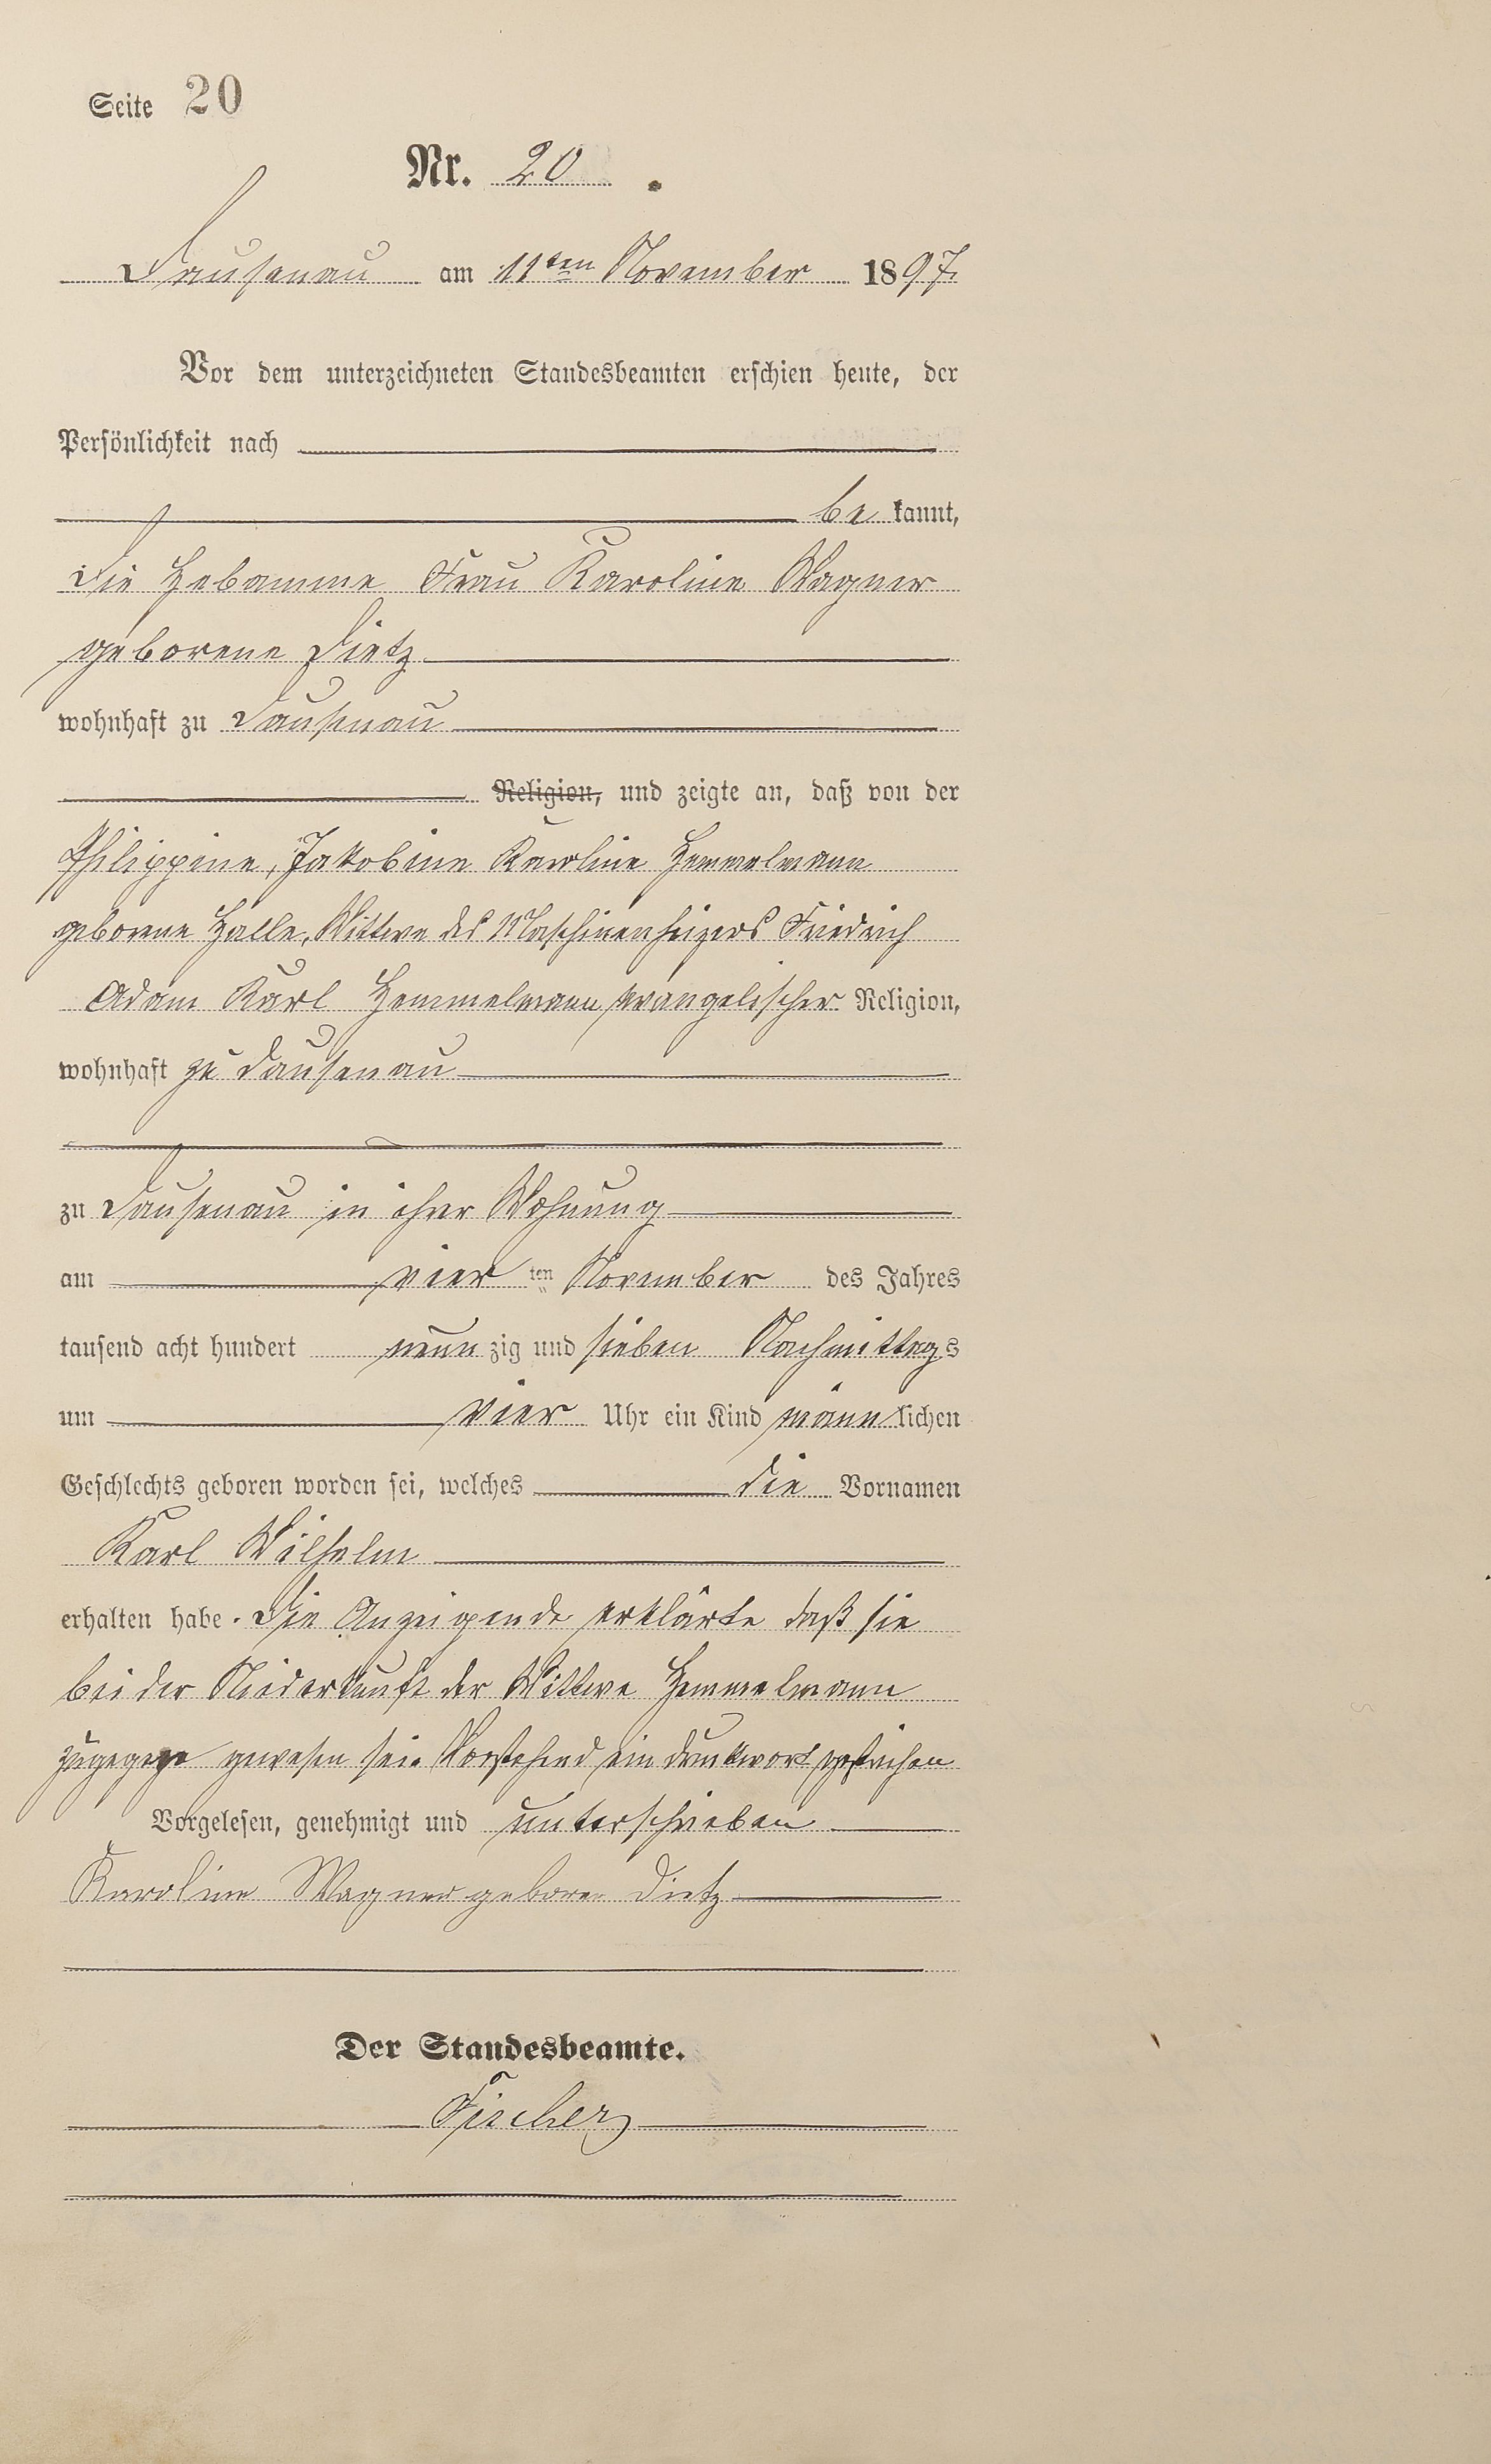 Seite 20
Nr. 20.
Dausenau am 11ten November 1897.
Vor dem unterzeichneten Standesbeamten erschien heute, der
Persönlichkeit nach
bekannt,
die Hebamme Frau Karoline Wagner
geborene Dietz
wohnhaft zu Dausenau
Religion, und zeigte an, daß von der
Philippine, Jakobine Karoline Hemmelmann
geborene Halle, Wittwe des Maschinenheizers Friedrich
Adam Karl Hemmelmann evangelischer Religion,
wohnhaft zu Dausenau
zu Dausenau in ihrer Wohnung
am vierten November des Jahres
tausend acht hundert neunzig und sieben Nachmittags
um vier Uhr ein Kind männlichen
Geschlechts geboren worden sei, welches die Vornamen
Karl Wilhelm
erhalten habe. Die Anzeigende erklärte daß sie
bei der Niederkunft der Wittwe Hemmelmann
zugegen gewesen sei. Vorstehend ein Druckwort gestrichen
Vorgelesen, genehmigt und unterschrieben
Karoline Wagner geboren Dietz
Der Standesbeamte.
Fischer